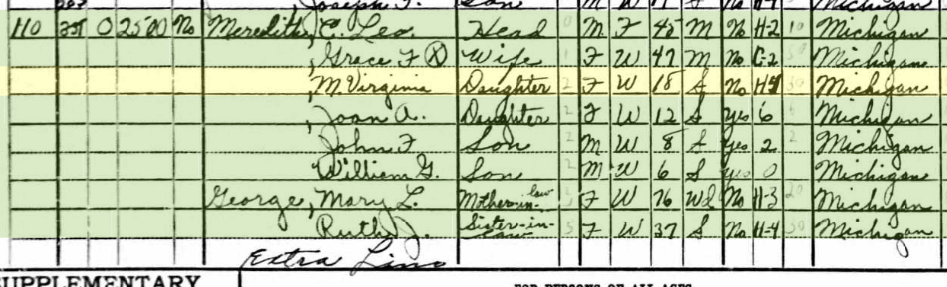 Joseph F. Son M W 17 S No H-4 Michigan
110 351 O 2500 No Meredith, C. Leo Head M F 45 M No H-2 Michigan
, Grace F Ⓧ Wife F W 47 M No C-2 Michigan
, M. Virginia Daughter F W 18 S No H-4 Michigan
, Joan A. Daughter F W 12 S Yes 6 Michigan
John F Son M W 8 S Yes 2 Michigan
William G. Son M W 6 S Yes 0 Michigan
George, Mary L. Mother-in-law F W 76 Wd No H-3 Michigan
Ruth J. Sister-in-law F W 37 S No H-4 Michigan
Extra Line
SUPPLEMENTARY
FOR PERSONS OF ALL AGES